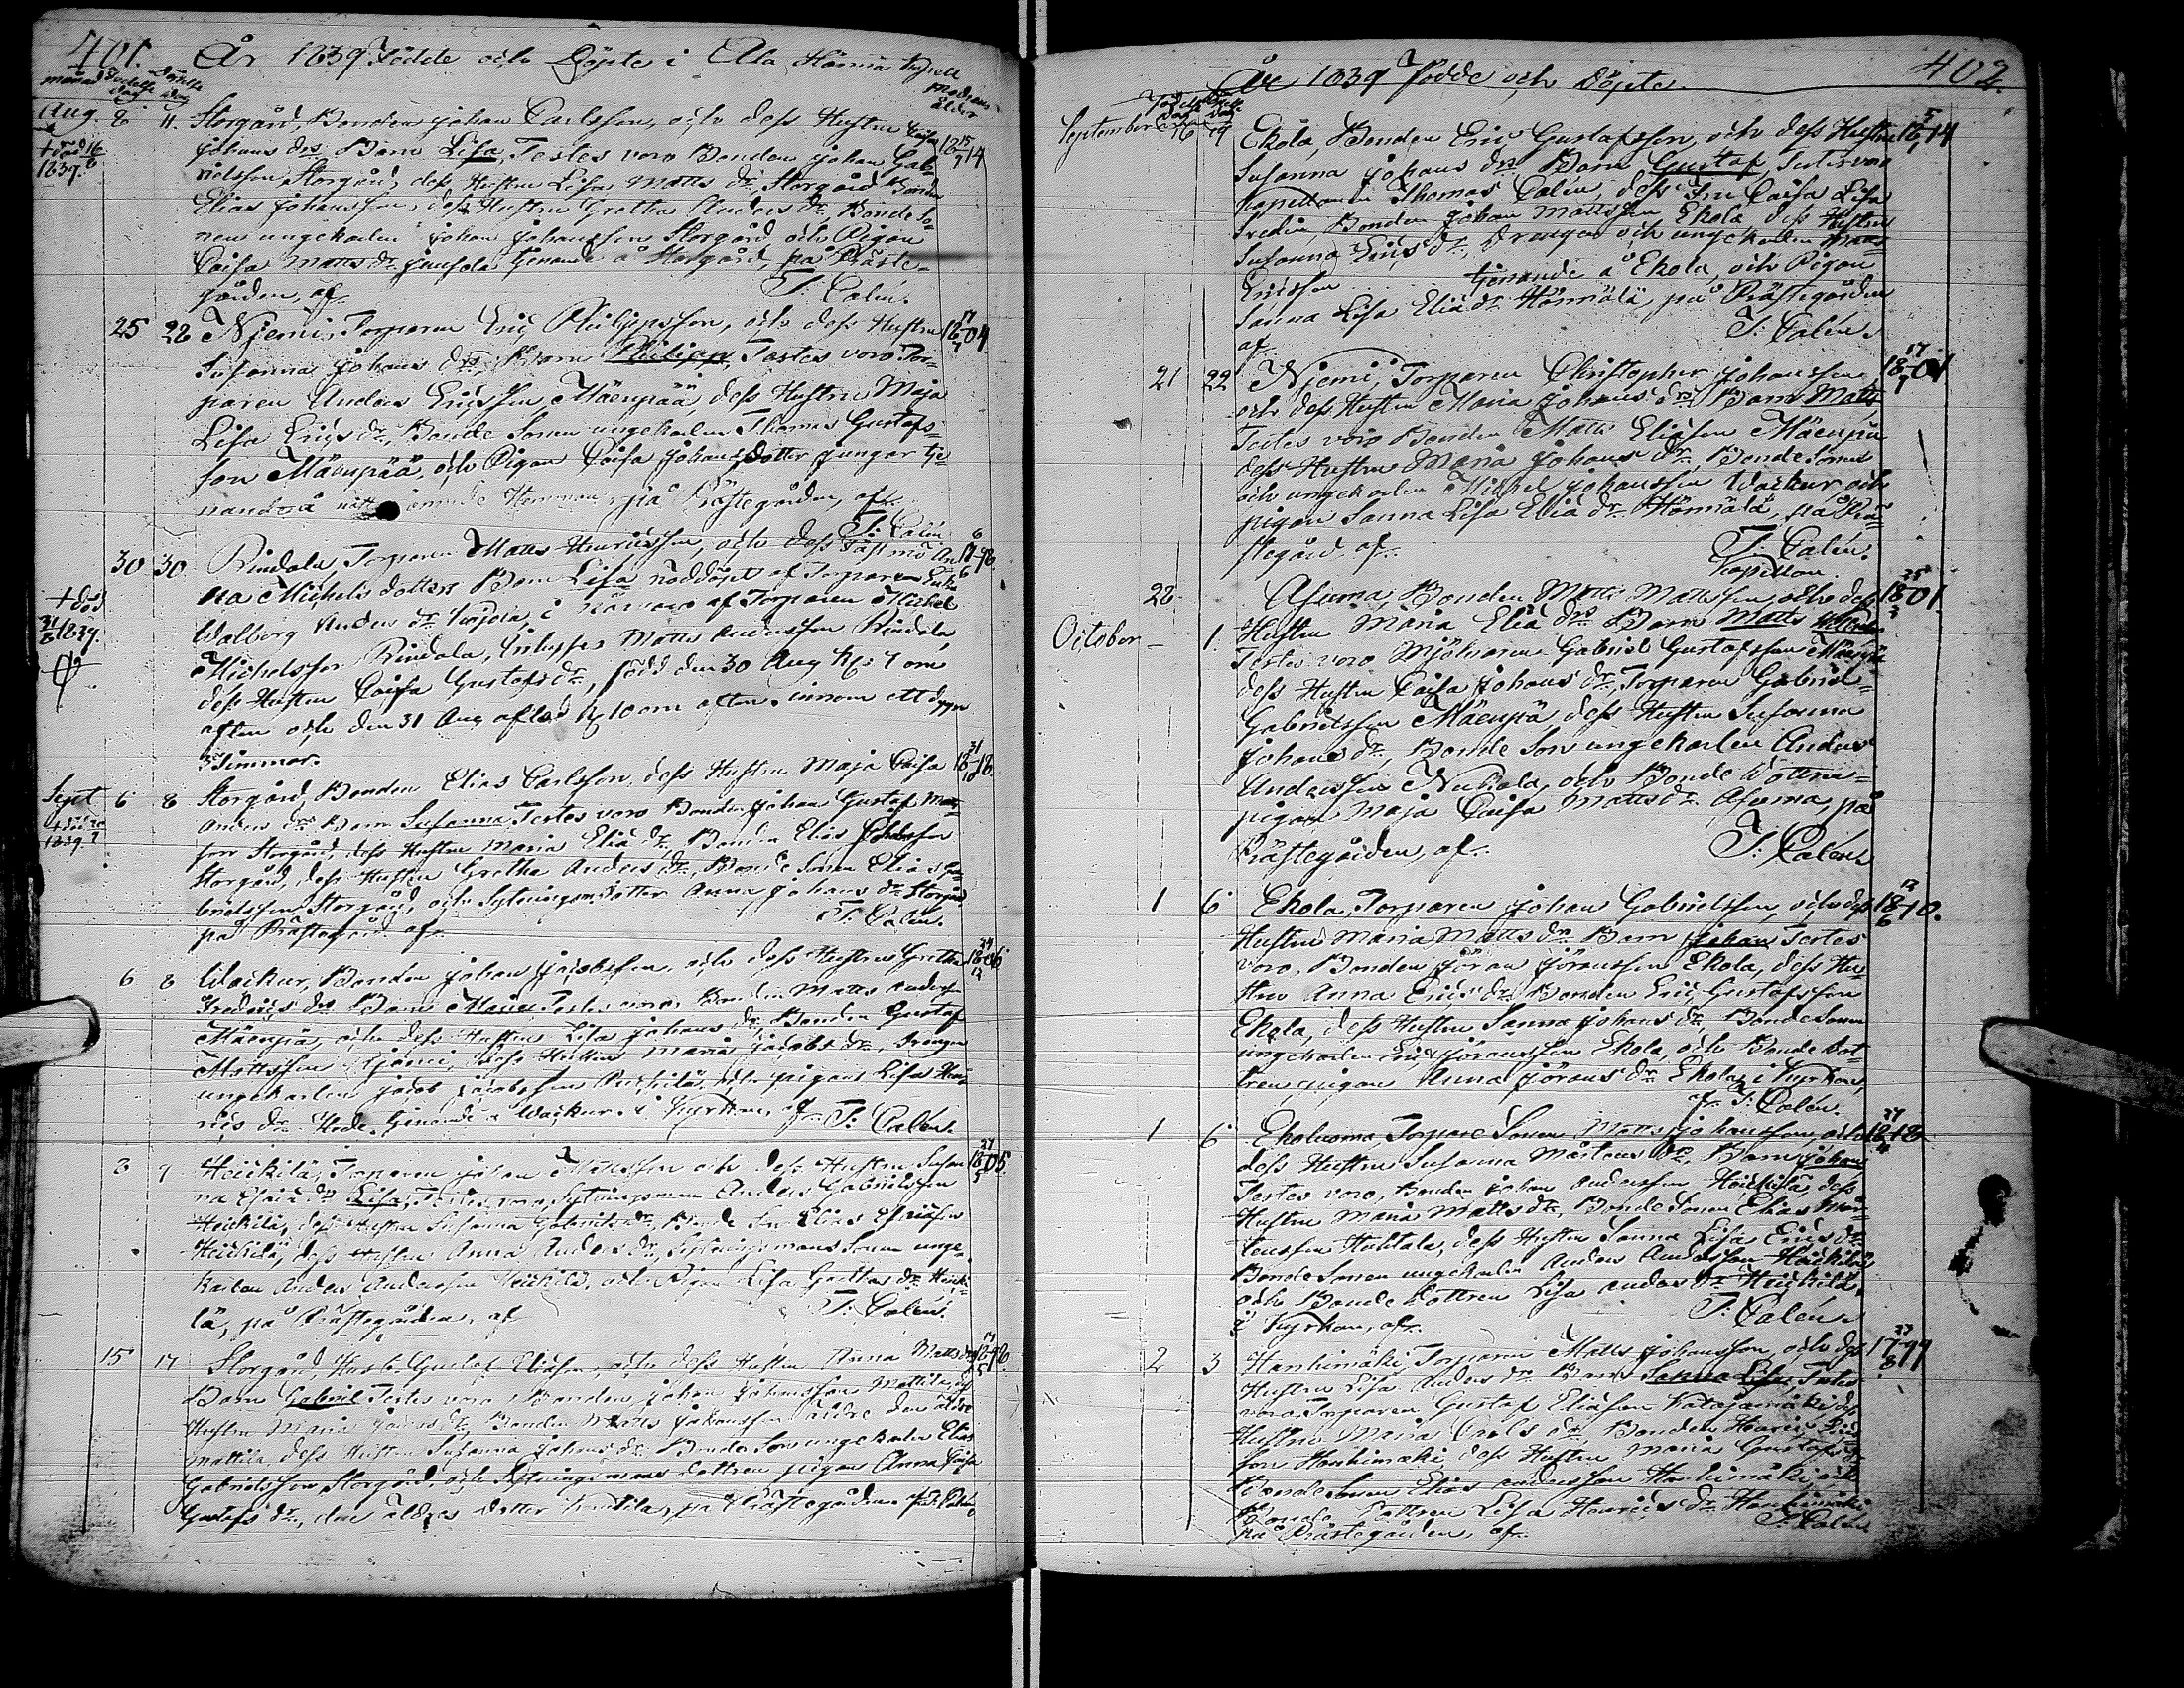 401. År 1839 Födde och Döpte i Ala Härmä Kapell
månad Födelse dag Döpelse dag Modrens ålder
Aug. 8 11. Storgård, Bonden Johan Carlsson, och dess Hustru Caisa 15/7 1814
+ död 16/8 1839. Johans dr Barn Lisa, Testes voro Bonden Johan Gab-
rielsson Storgård, dess Hustru Lisa Matts dr Storgård Bonden
Elias Johansson, dess Hustru Gretha Anders dr, Bonde So-
nen ungekarlen Johan Johansson Storgård och Pigan
Caisa Matts dr tjenande å Storgård, på Präste-
gården, af
T: Calén.
25 28 Njemi, Torparen Eric Philippsson, och dess Hustru 17/7 1804.
Susanna Johans dr, Barn Philipp, Testes voro Tor-
paren Anders Ericsson Mäenpää, dess Hustru Maja
Lisa Erics dr, Bonde Sonen ungekarlen Thomas Gustafs-
son Mäenpää, och Pigan Caisa Johans dotter junger tje-
nande å Hemman, på Prästegården, af.
T: Calén
30 30. Rindala, Torparen Matts Henricsson, och dess Fästmö An
na Michels dotters Barn Lisa nöddöpt af Torpare Enka
+ död 31/8 1839. Walborg Anders dr, i närvaro af Torparen Michel
Michelsson Rindala, Matts Andersson Rindala,
dess Hustru Caisa Gustafs dr, född den 30 Aug kl: om
aften och den 31 Aug afled kl 10 om aften. innom ett dygn
Timmar.
Sept 6 8 Storgård, Bonden Elias Carlsson, dess Hustru Maja Caisa 31/ 1818
1839. Anders dr Barn Susanna, Testes voro Bonden Johan Gustaf Mats-
son Storgård, dess Hustru Maria Eliä dr, Bonden Elias
Storgård, dess Hustru Gretha Anders dr, Bonde Sonen Elias Ga-
brielsson Storgård, och Sytningsm. dotter Anna Johans dr Storgård
på Prästegård. af.
T: Calén.
6 8 Wackur, Bonden Johan Jacobsson, och dess Hustru Gretha 24/12 1806
Fredrics dr Barn Maria Testes voro Bonden Matts Anderss
Mäenpää, och dess Hustru Lisa Johans dr, Bonden Gustaf
Mattsson Njemi, dess Hustru Maria Jacobs dr, Drengen
ungekarlen Jacob Jacobsson, och pigan Lisa Hen-
rics dr. tjenande å Wackur. i Kyrkan. af T: Calén.
8 9 Heickilä, Torparen Johan Mattsson och dess Hustru Susan 1805.
na dr Lisa, Testes voro, Sytningsman Anders Gabrielsson
Heickilä, dess Hustru Susanna Gabriels dr, Bonde Son Elias
Heickilä, dess Hustru Anna Anders dr, Sytningsmans Sonen unge-
karlen Anders Andersson Heickilä. och Pigan Lisa dr Heicki
lä, på Prästegården, af
T: Calén.
15 17 Storgård, Husb Gustaf Eliasson, och dess Hustru Anna Matts dr
Barn Gabriel Testes voro Bonden Johan Johansson Mattila, dess
Hustru Maria dr, Bonden Matts Johansson äldre den äldre
Mattila, dess Hustru Susanna Johans dr Bonde Son ungekarlen Elias
Gabrielsson Storgård, och Sytningsmans dottren pigan Anna Caisa
Gustafs dr, den äldres Dotter, på Prästegården af T: Calén

År 1839 Födde och Döpte. 402.
Födelse Dag Döpt. Dag
September 16 19 Ekola, Bonden Eric Gustafsson, och dess Hustru 5/ 1814
Susanna Johans dr Barn Gustaf, Testes voro
Kapellanen Thomas Calén, dess Fru Caisa Lisa
Bonden Johan Mattsson Ekola, dess Hustru
Susanna Erics dr, Drengen och ungekarlen Matts
Ericsson tjenande å Ekola, och Pigan
Sanna Lisa Eliä dr Hörmälä, på Prästegården
af T: Calén.
21 22 Njemi, Torparen Christopher Johansson 17/7 1801
och dess Hustru Maria Johans dr, Barn Matts
Testes voro Bonden Matts Eliasson Mäenpää
dess Hustru Maria Johans dr, Bonde Sonen
och ungekarlen Michel Johansson Wackur, och
pigan Sanna Lisa Eliä dr Hörmälä, på Prä-
stegård, af.
T: Calén.
Kapellan.
28 Asuma, Bonden Matts Mattsson, och dess 25/3 1801.
October 1. Hustru Maria Eliä dr Barn Matts
Testes voro Mjölnaren Gabriel Gustafsson Mäenpää
dess Hustru Caisa Johans dr, Torparen Gabriel
Gabrielsson Mäenpä, dess Hustru Susanna
Johans dr, Bonde Son ungekarlen Anders
Andersson, och Bonde Dottren
pigan Maja Caisa Matts dr. Asuma, på
Prästegården, af.
T: Calén
1 6 Ekola, Torparen Johan Gabrielsson, och dess 12/6 1810.
Hustru Maria Matts dr Barn Johan Testes
voro. Bonden Jöran Jöransson Ekola, dess Hu-
stru Anna Erics dr, Bonden Eric Gustafsson
Ekola, dess Hustru Sanna Johans dr, Bonde Sonen
ungekarlen Eric Jöransson Ekola, och Bonde Dot-
tren pigan Anna Jörans dr Ekola, i Kyrkan,
af. T: Calén.
1 6 Ekoluoma, Torpare Sonen Matts Johansson, och 1818
dess Hustru Susanna Mårtens dr, Barn Johan
Testes voro, Bonden Johan Andersson Heickilä, dess
Hustru Maria Matts dr, Bonde Sonen Elias Mår-
tensson Huhtala, dess Hustru Sanna Lisa Erics dr
Bonde Sonen ungekarlen Anders Andersson Heickilä
och Bonde dottren Lisa Anders dr Heickilä,
i Kyrkan, af.
T: Calén.
2 3 Hanhimäki, Torparen Matts Johansson, och dess 23/8 1799
Hustru Lisa Anders dr Barn Sanna Lisa, Testes
voro Torparen Gustaf Eliasson Katajamäki dess
Hustru Maria Carls dr Bonden Henric
son Hanhimäki, dess Hustru Maria Gustafs dr
Bonde Sonen Elias Andersson Hanhimäki, och
Bonde Dottren Lisa Henrics dr Hanhimäki
på Prästegården, af.
T: Calén